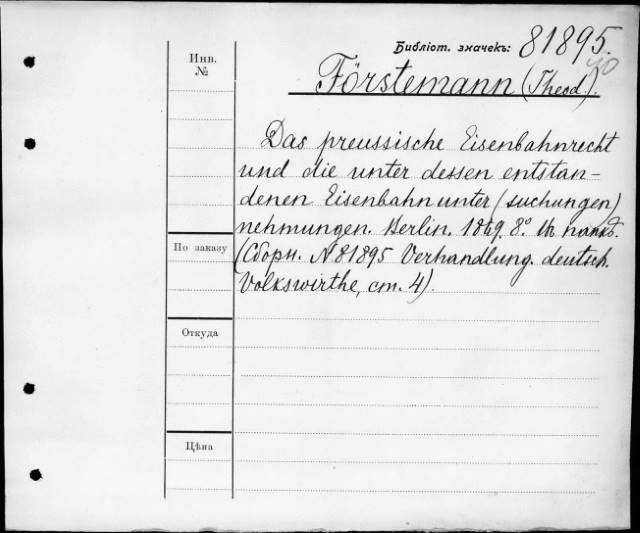 Библіот. значекъ: 81895.
40
Инв.
№
Förstemann (Theod.).
Das preussische Eisenbahnrecht
und die unter dessen entstan-
denen Eisenbahnunter (suchungen)
nehmungen. Berlin. 1869. 8.° въ папкѣ.
По заказу
(Сборн. N 81895 Verhandlung. deutsch.
Volkswirthe, ст. 4).
Откуда
Цѣна